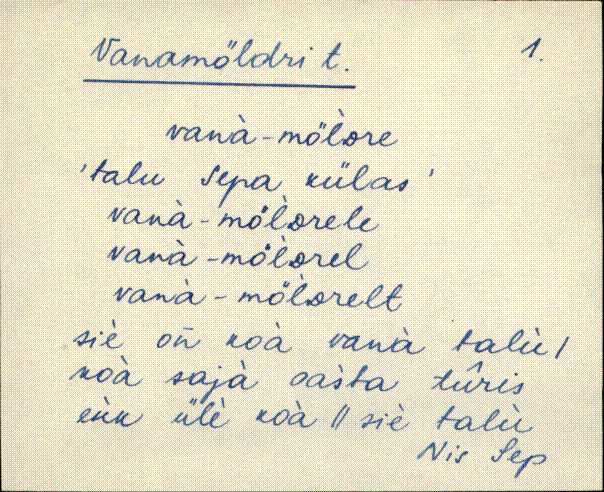 Vanamöldri t. 1.
vanà-möl̀ᴅre
'talu Sepa külas'
vanà-möl̀ᴅrele
vanà-möl̀ᴅrel
vanà-möl̀ᴅrelt
siè on̄ koà vanà talù/
koà sajà oàsta tûris
eìk ülè koà // siè talù
Nis Sep